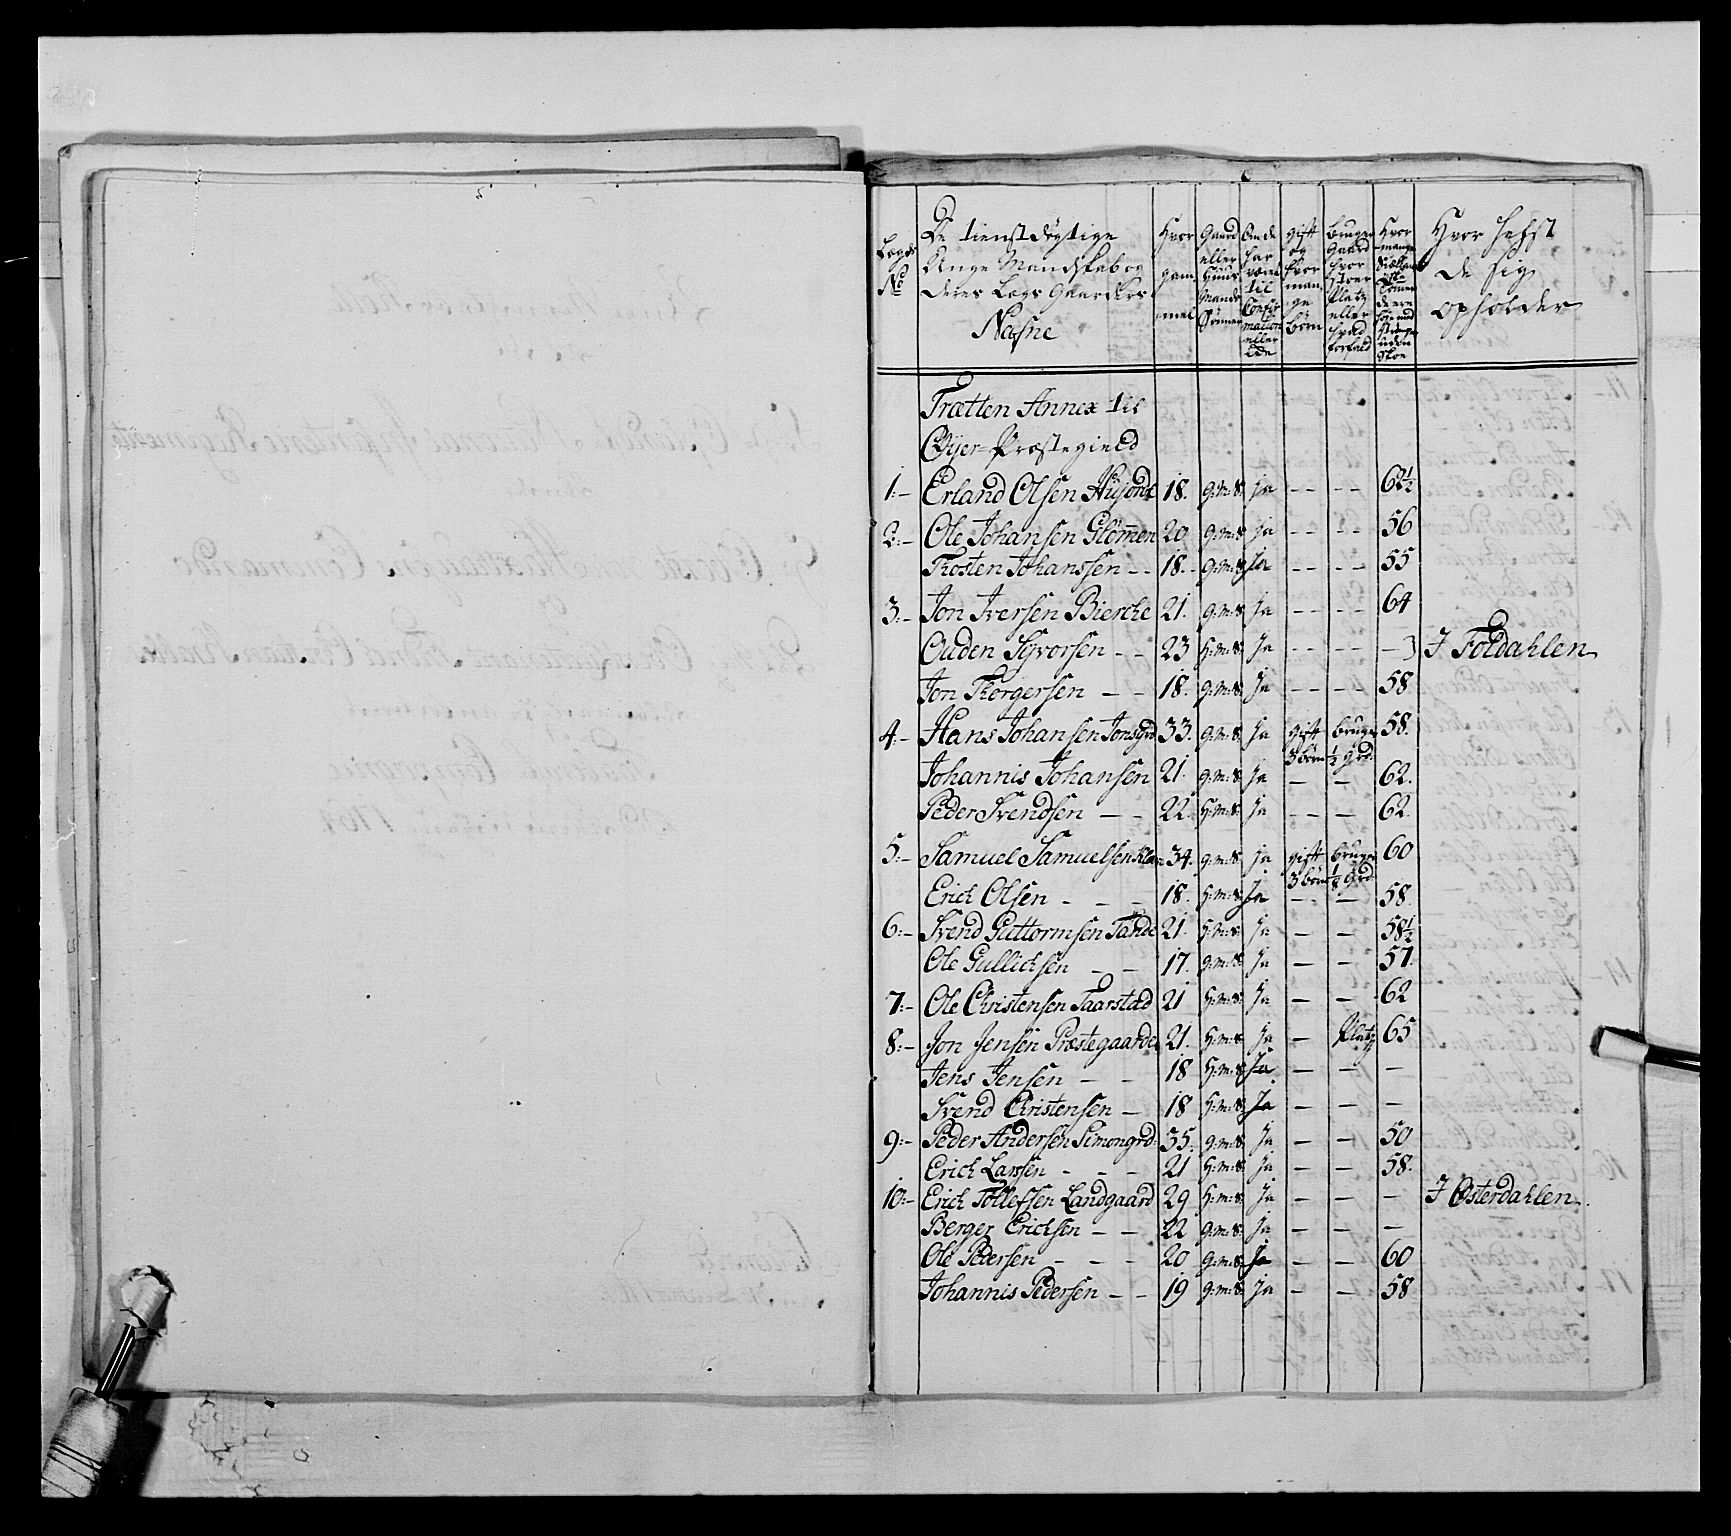 Lægds No
De tienstdygtige
Unge Mandskab og
deres Lægs Gaarders
Nafne
Hvor gam- mel
Gaard eller Huus Mands Sønner
Om de har været til Confir mation eller Ede
gift og hvor man- ge børn
bruger Gaard hvor stoer Platz eller hvad forfald
Hvor mange uden Skoe
Hvor helst
de sig
opholder
Trætten Annex til
Øyer-Præstegield
1:- Erland Olsen 18. g:m:s: ja - - - - 62½
2:- Ole Johansen Glømmen 20 g:m:s: ja - - - - 56
Thosten Johanssen - - 18. - g:m:s: Ja - - - - 55
3:- Jon Iversen Bierche 21. g:m:s: Ja - - - - 64
Ouden Syvorsen - - 23 H:m:s: Ja - - - - - I Foldahlen
Jon Thorgersen - - 18. g:m:s: Ja - - - - 58
4:- Hans Johansen Jonsgrd 33. g:m:s: Ja gift 3 børn bruger ½ grd: 58.
Johannis Johansen 21. g:m:s: Ja - - 62.
Peder Svendsen - - 22. H:m:s: Ja - - - 62.
5:- Samuel Samuelsen 34. g:m:s: ja gift 3 børn bruger ⅛ grd 60
Erich Olsen - - - 18. H:m:s: Ja - - - 58.
6:- Svend Guttormsen Tande 21. H:m:s: Ja - - 58½
Ole Gullichsen - - 17. g:m:s: Ja - - 57.
7:- Ole Christensen Taarstad 21 H:m:s: Ja - - 62
8:- Jon Jensen Præstegaarden 21. H:m:s: Ja - Platz 65
Jens Jensen - - 18 H:m:s: Ja - - -
Svend Christensen - 18 H:m:s: Ja - - -
9:- Peder Andersen Simongrd: 35: g:m:s: Ja - - 50
Erich Larssen - - - 21 H:m:s: Ja - - 58.
10:- Erich Tollefssen Landgaard 29 H:m:s: Ja - - - I Østerdahlen
Berger Erichsen - - 22 g:m:s: Ja - - -
Ole Pedersen - - - 20 g:m:s: Ja - - 60
Johannis Pedersen - - 19 g:m:s: Ja - - 58